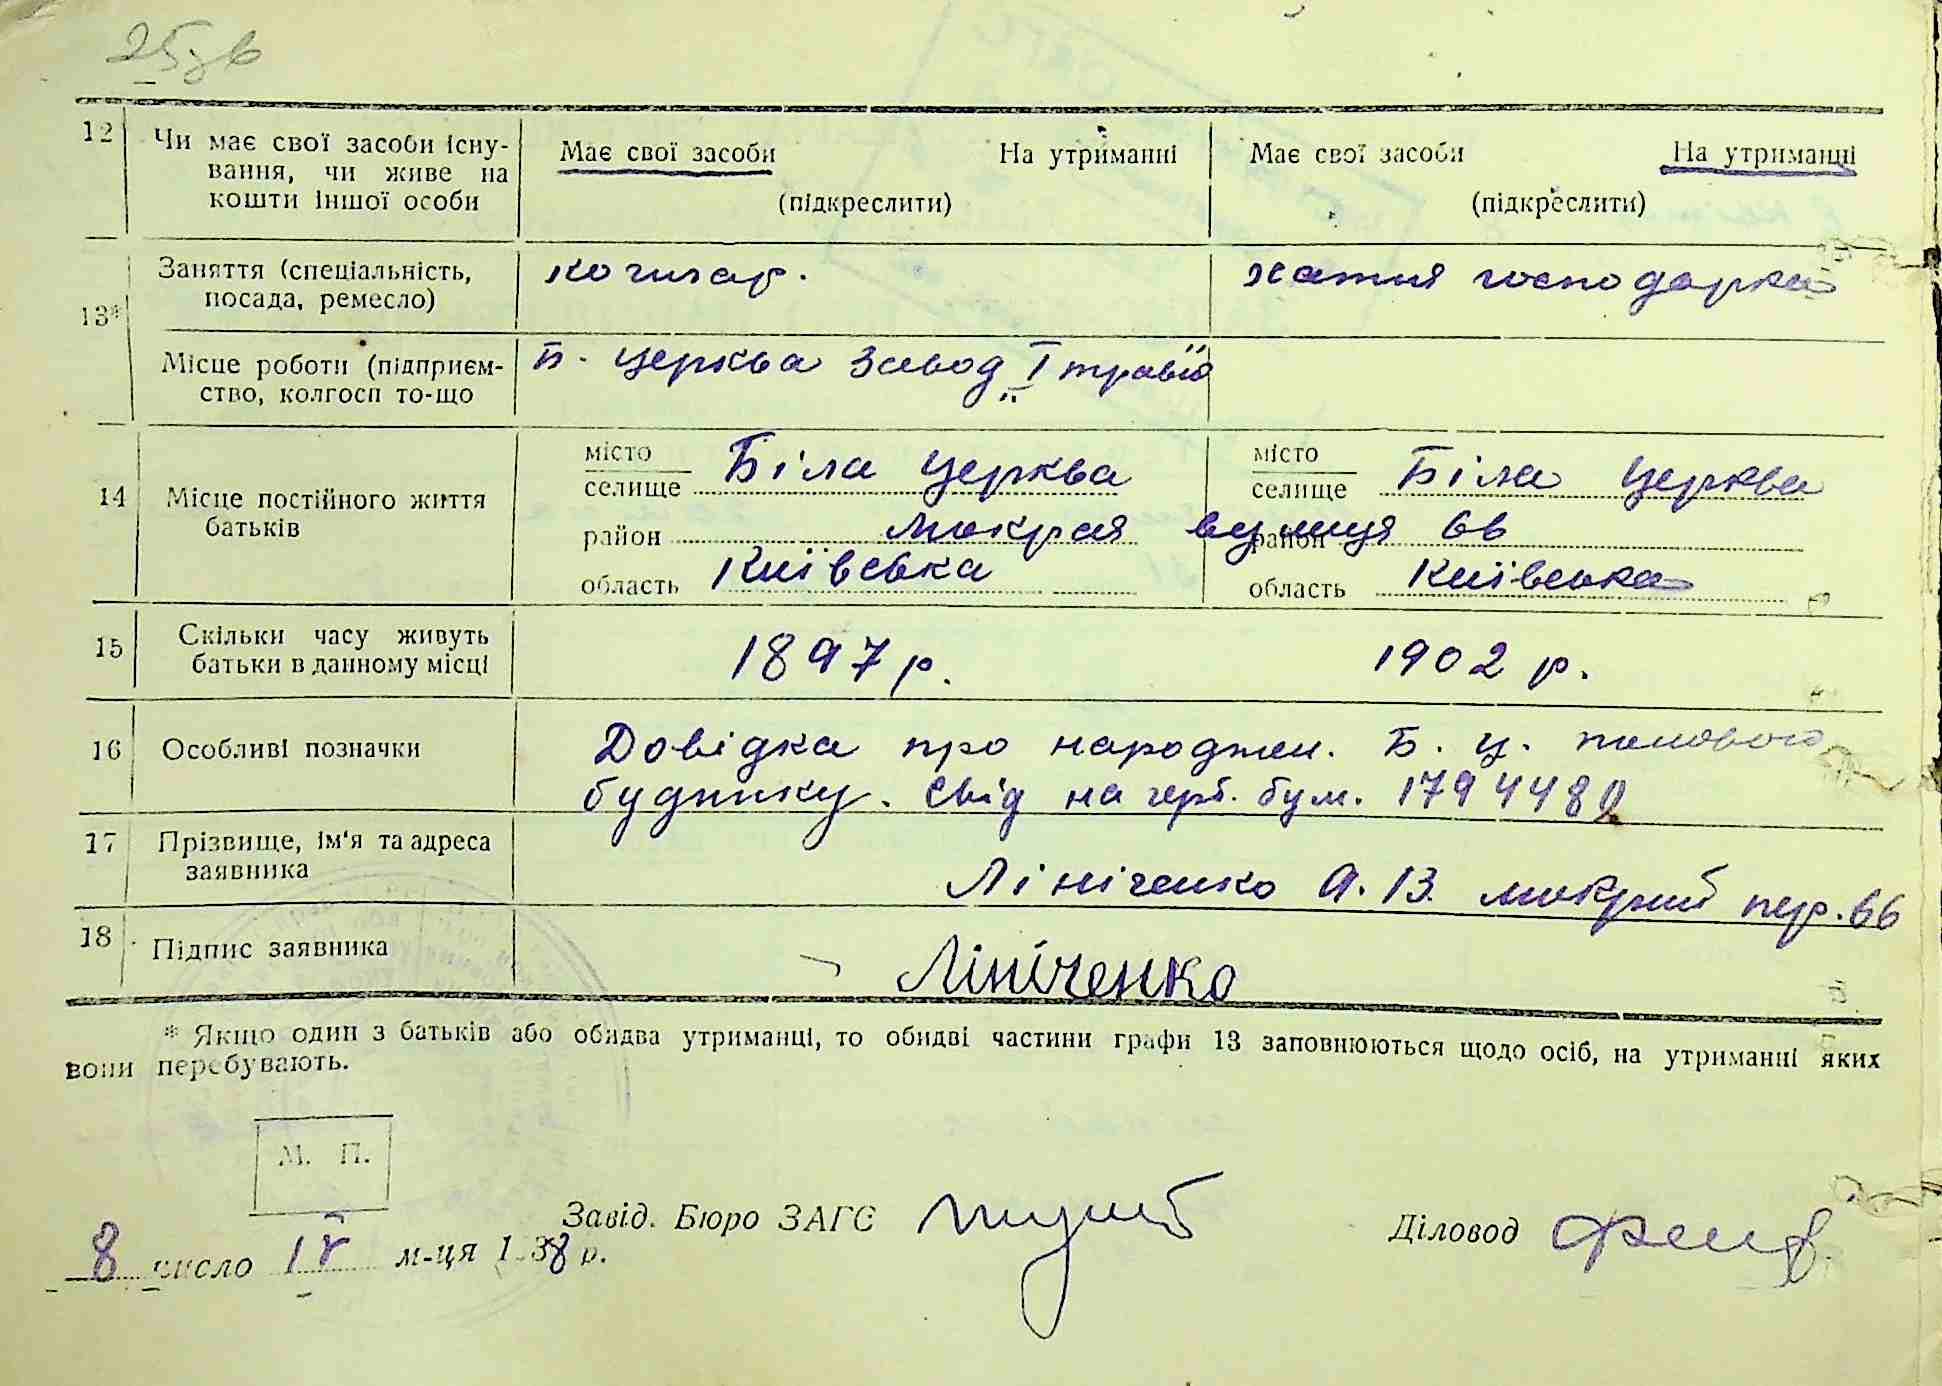 25зв
12 Чи має свої засоби існу-
вання, чи живе на
кошти іншої особи
Має свої засоби На утриманні
(підкреслити)
Має свої засоби На утриманні
(підкреслити)
13* Заняття (спеціальність,
посада, ремесло)
кочигар.
хатня господарка
Місце роботи (підприєм-
ство, колгосп то-що
Б. Церква Завод „І травня"
14 Місце постійного життя
батьків
місто
селище Біла Церква
район мокрая вулиця 66
область Київська
місто
селище Біла Церква
район
область Київська
15 Скільки часу живуть
батьки в данному місці
1897 р.
1902 р.
16 Особливі позначки
Довідка про народжен. Б. Ц. пологового
будинку. Свід на герб. бум. 179448
17 Прізвище, ім'я та адреса
заявника
Лініченко А. В. мокрий пер. 66
18 Підпис заявника
Лініченко
* Якщо один з батьків або обидва утриманці, то обидві частини графи 13 заповнюються щодо осіб, на утриманні яких
вони перебувають.
М. П.
Завід. Бюро ЗАГС
Діловод
8 число IV м-ця 1938 р.